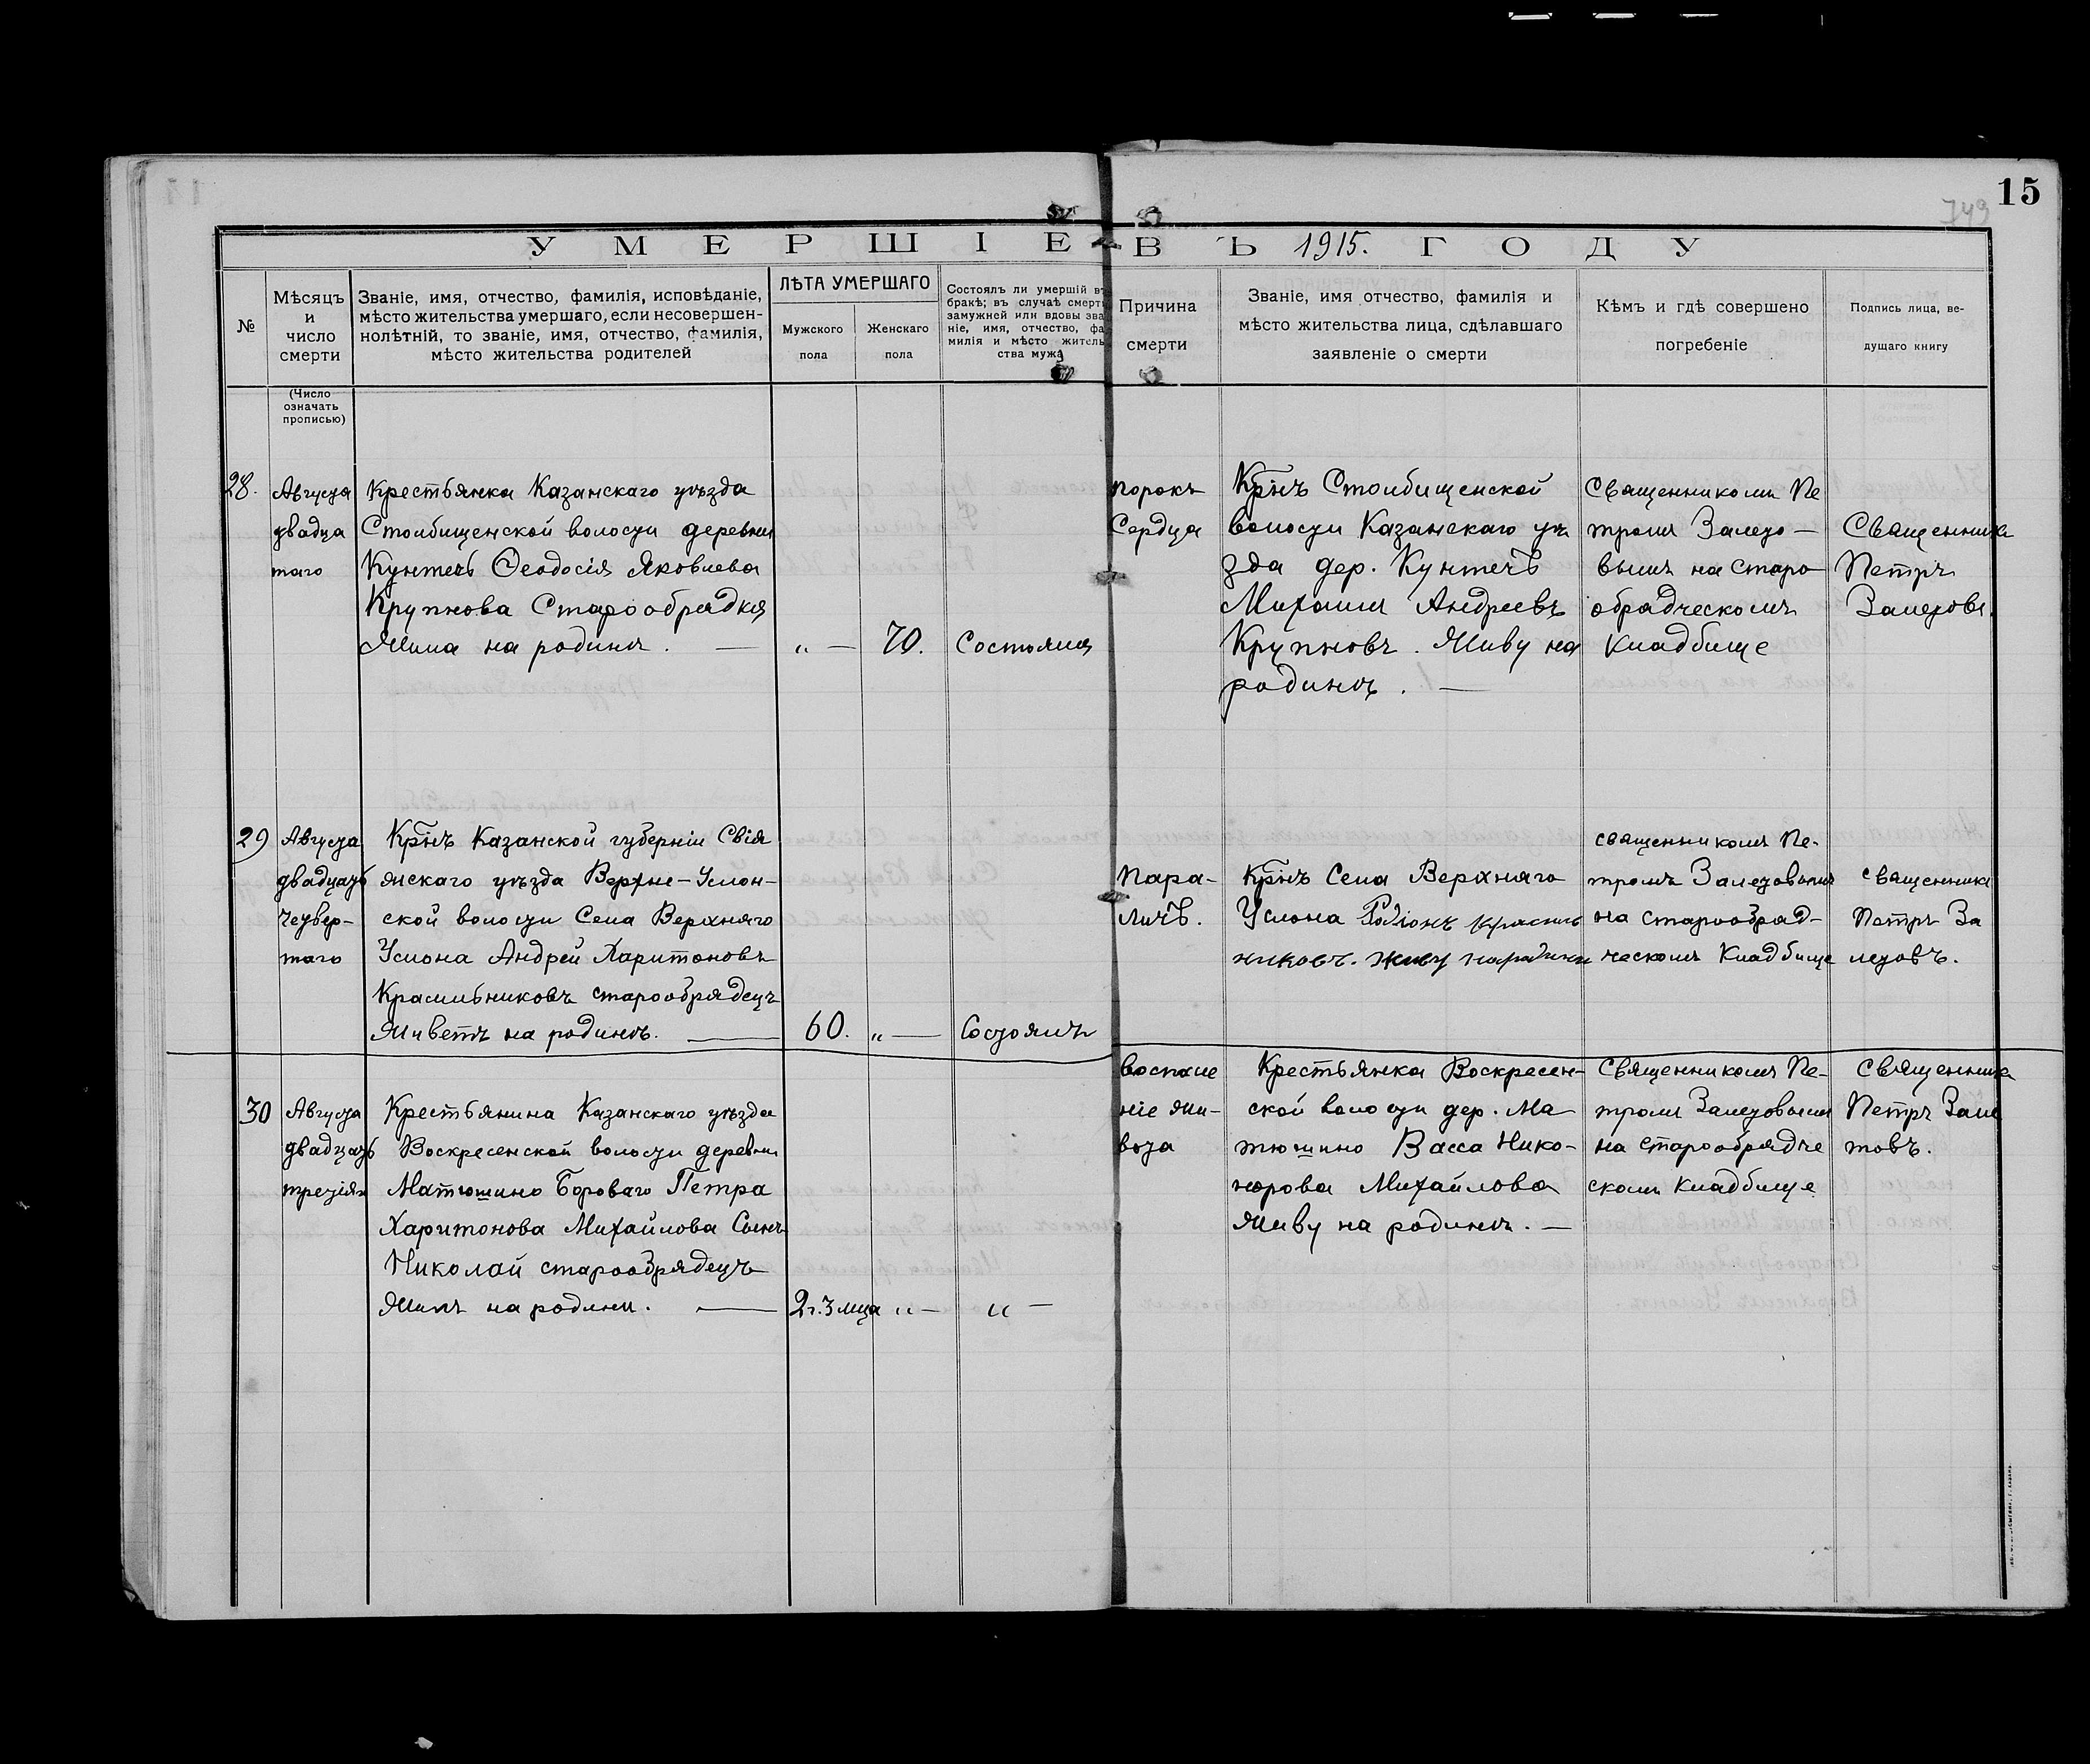 15
749
УМЕРШІЕ ВЪ 1915. ГОДУ
№
Мѣсяцъ
и
число
смерти
(Число
означать
прописью)
Званіе, имя, отчество, фамилія, исповѣданіе,
мѣсто жительства умершаго, если несовершен-
нолѣтній, то званіе, имя, отчество, фамилія,
мѣсто жительства родителей
ЛѢТА УМЕРШАГО
Мужского
пола
Женскаго
пола
Состоялъ ли умершій въ
бракѣ; въ случаѣ смерти
замужней или вдовы зва
ніе, имя, отчество, фа
милія и мѣсто житель
ства мужа
Причина
смерти
Званіе, имя отчество, фамилія и
мѣсто жительства лица, сдѣлавшаго
заявленіе о смерти
Кѣмъ и гдѣ совершено
погребеніе
Подпись лица, ве-
дущаго книгу
28.
Августа
двадца
таго
Крестьянка Казанскаго уѣзда
Столбищенской волости деревни
Кунтечь Ѳеодосія Яковлева
Крупнова Старообрядка
Жила на родинѣ. —
„ —
70.
Состояла
порокъ
Сердца
Крнъ Столбищенской
волости Казанскаго уѣ
зда дер. Кунтечь
Михаилъ Андреевъ
Крупновъ. Живу на
родинѣ. —
Священникомъ Пе
тромъ Залето—
вымъ на старо
обрядческомъ
Кладбище
Священникъ
Петръ
Залетовъ.
29
Августа
двадцать
четвер-
таго
Крнъ Казанской губерніи Свія
жскаго уѣзда Верхне-Услон-
ской волости Села Верхняго
Услона Андрей Харитоновъ
Красильниковъ старообрядецъ
Живетъ на родинѣ. —
60.
„ —
Состоялъ
Пара-
личъ.
Крнъ Села Верхняго
Услона Родіонъ Красиль
никовъ. живу народини
священникомъ Пе-
тромъ Залетовымъ
на старообряд-
ческомъ Кладбище
священникъ
Петръ За
летовъ.
30
Августа
двадцать
третія
Крестьянина Казанскаго уѣзда
Воскресенской волости деревни
Матюшино Бороваго Петра
Харитонова Михайлова Сынъ
Николай старообрядецъ
Жилъ на родини. —
2г. 3 мца
„ —
„ —
воспале
ніе жи-
вота
Крестьянка Воскресен-
ской волости дер. Ма
тюшино Васса Нико-
норова Михайлова
Живу на родинѣ. —
Священникомъ Пе-
тромъ Залетовымъ
на старообрядче
скомъ Кладбище
Священникъ
Петръ Зале
товъ.